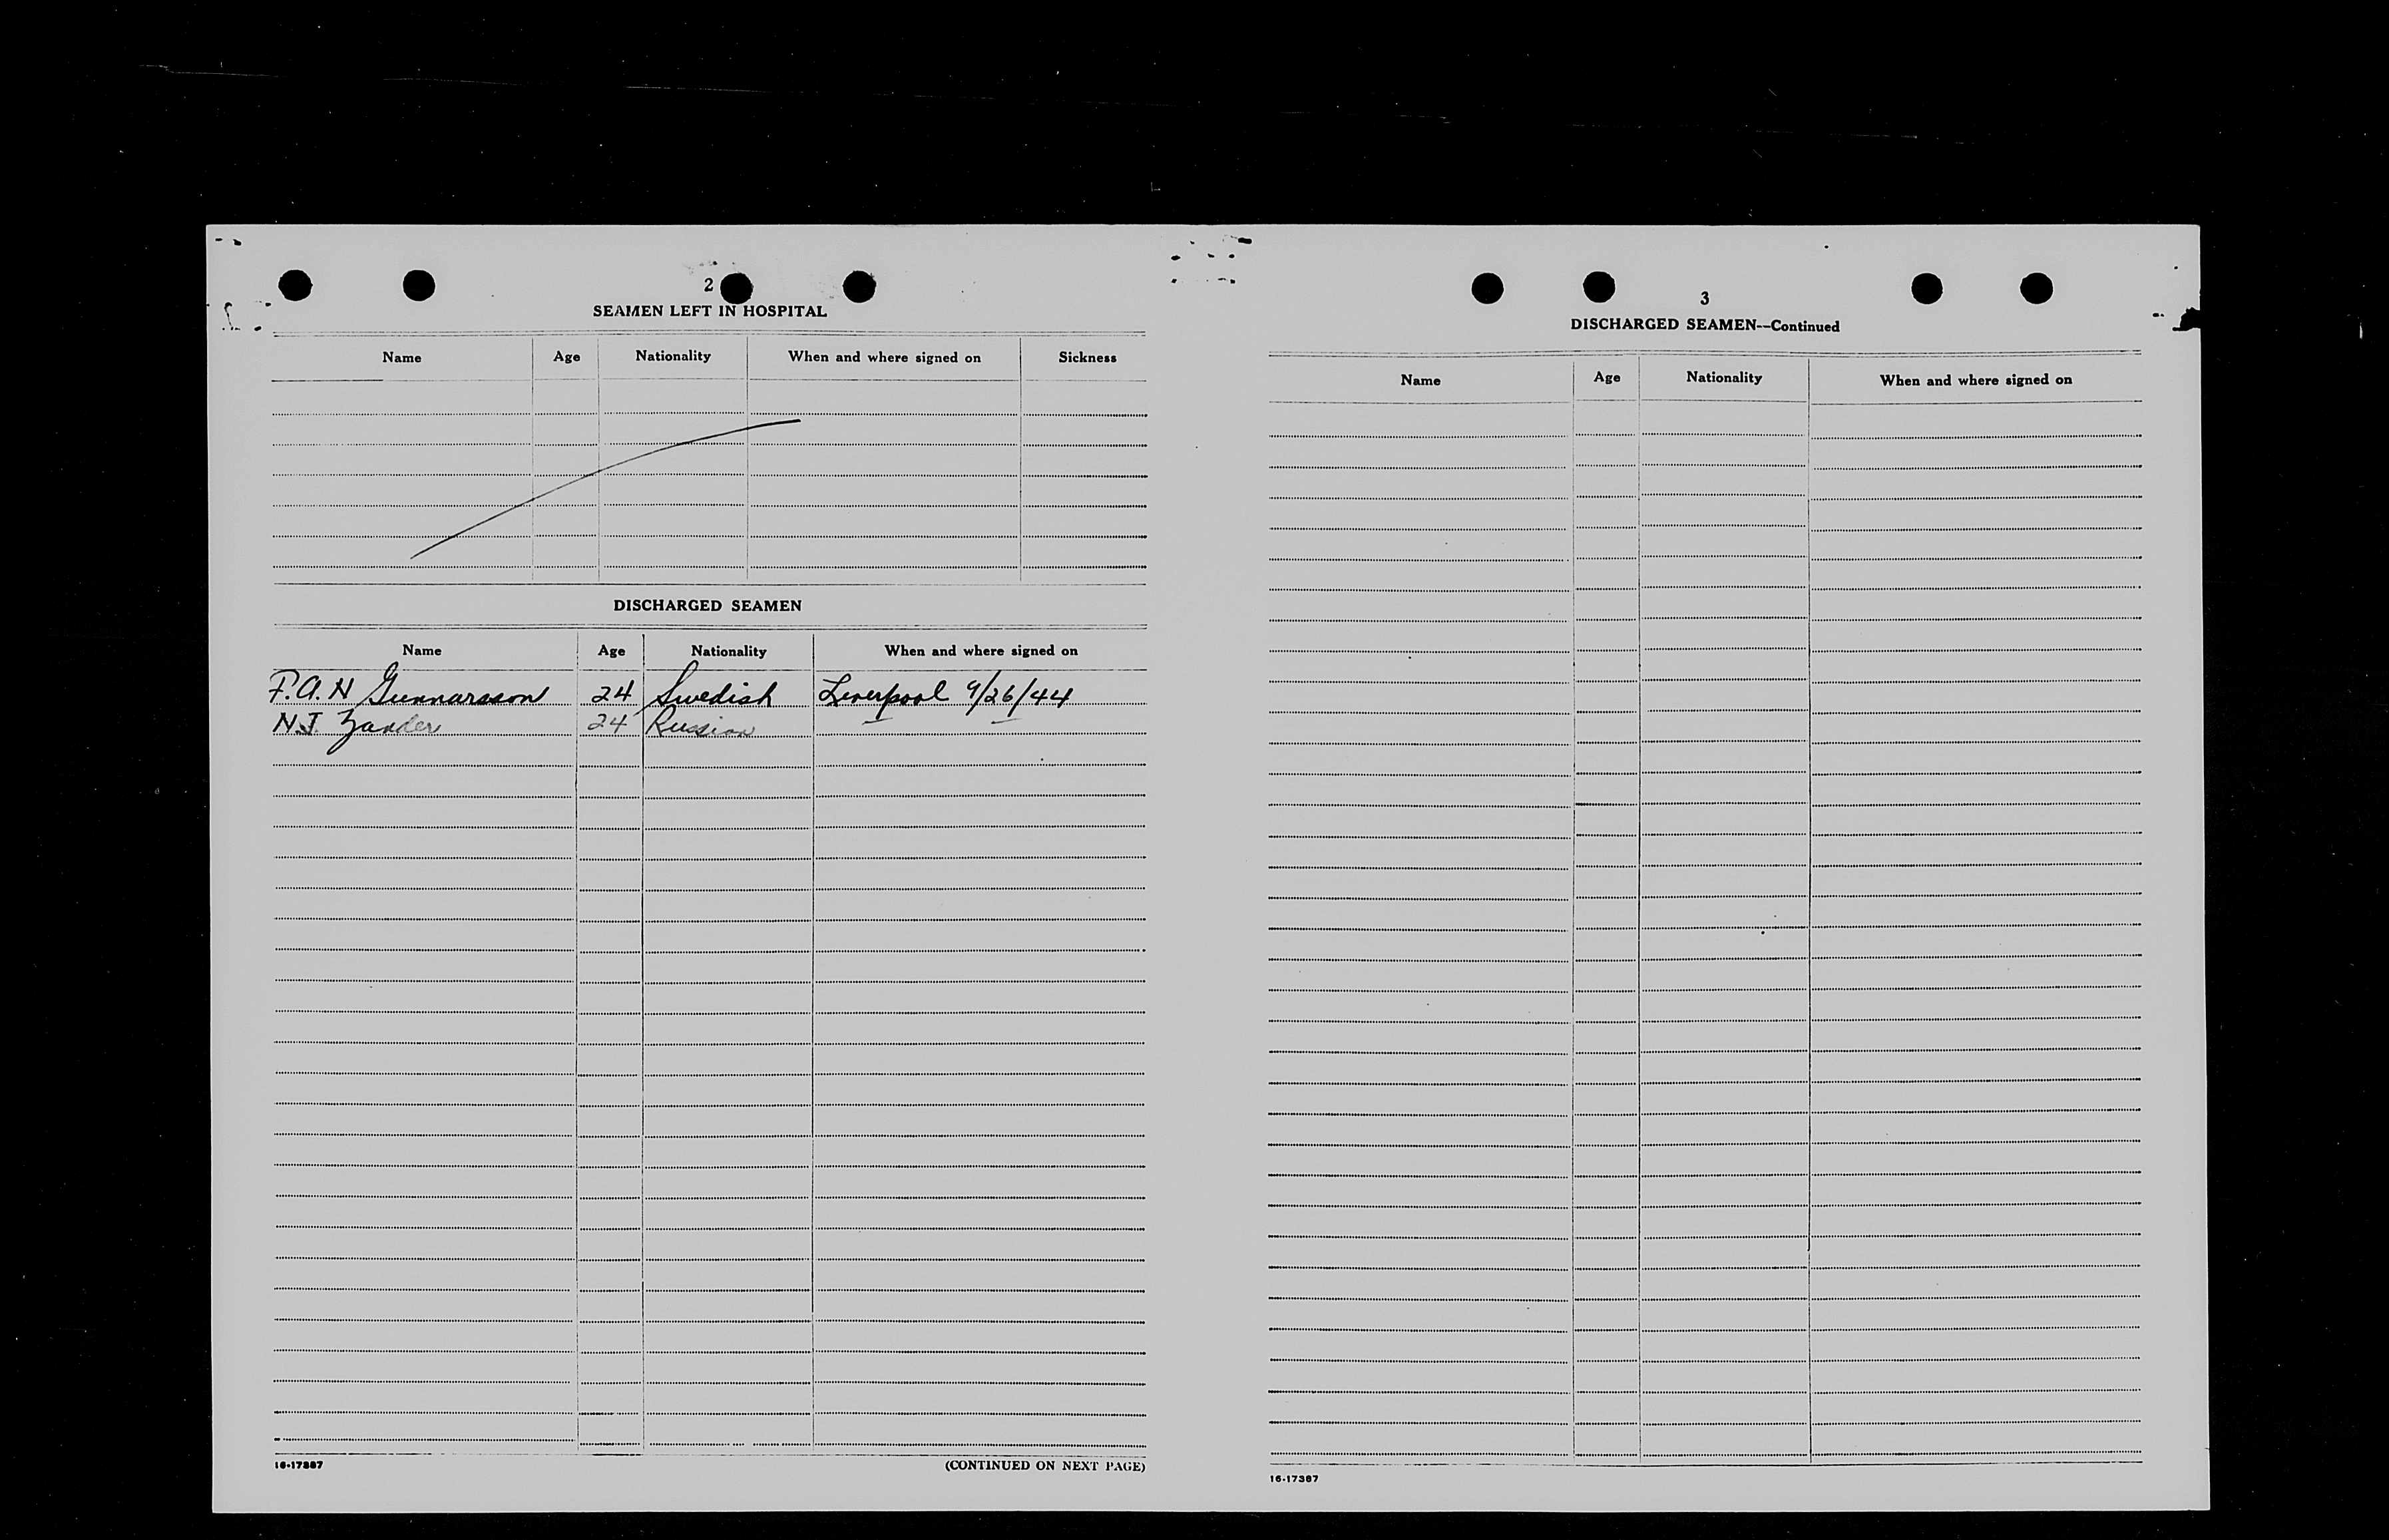 2
SEAMEN LEFT IN HOSPITAL
Name Age Nationality When and where signed on Sickness
DISCHARGED SEAMEN
Name Age Nationality When and where signed on
F.A.N Gunnarsson 24 Swedish Liverpool 9/26/44
N.J. Zander 24 Russian — —
16-17387
(CONTINUED ON NEXT PAGE)
3
DISCHARGED SEAMEN--Continued
Name Age Nationality When and where signed on
16-17387